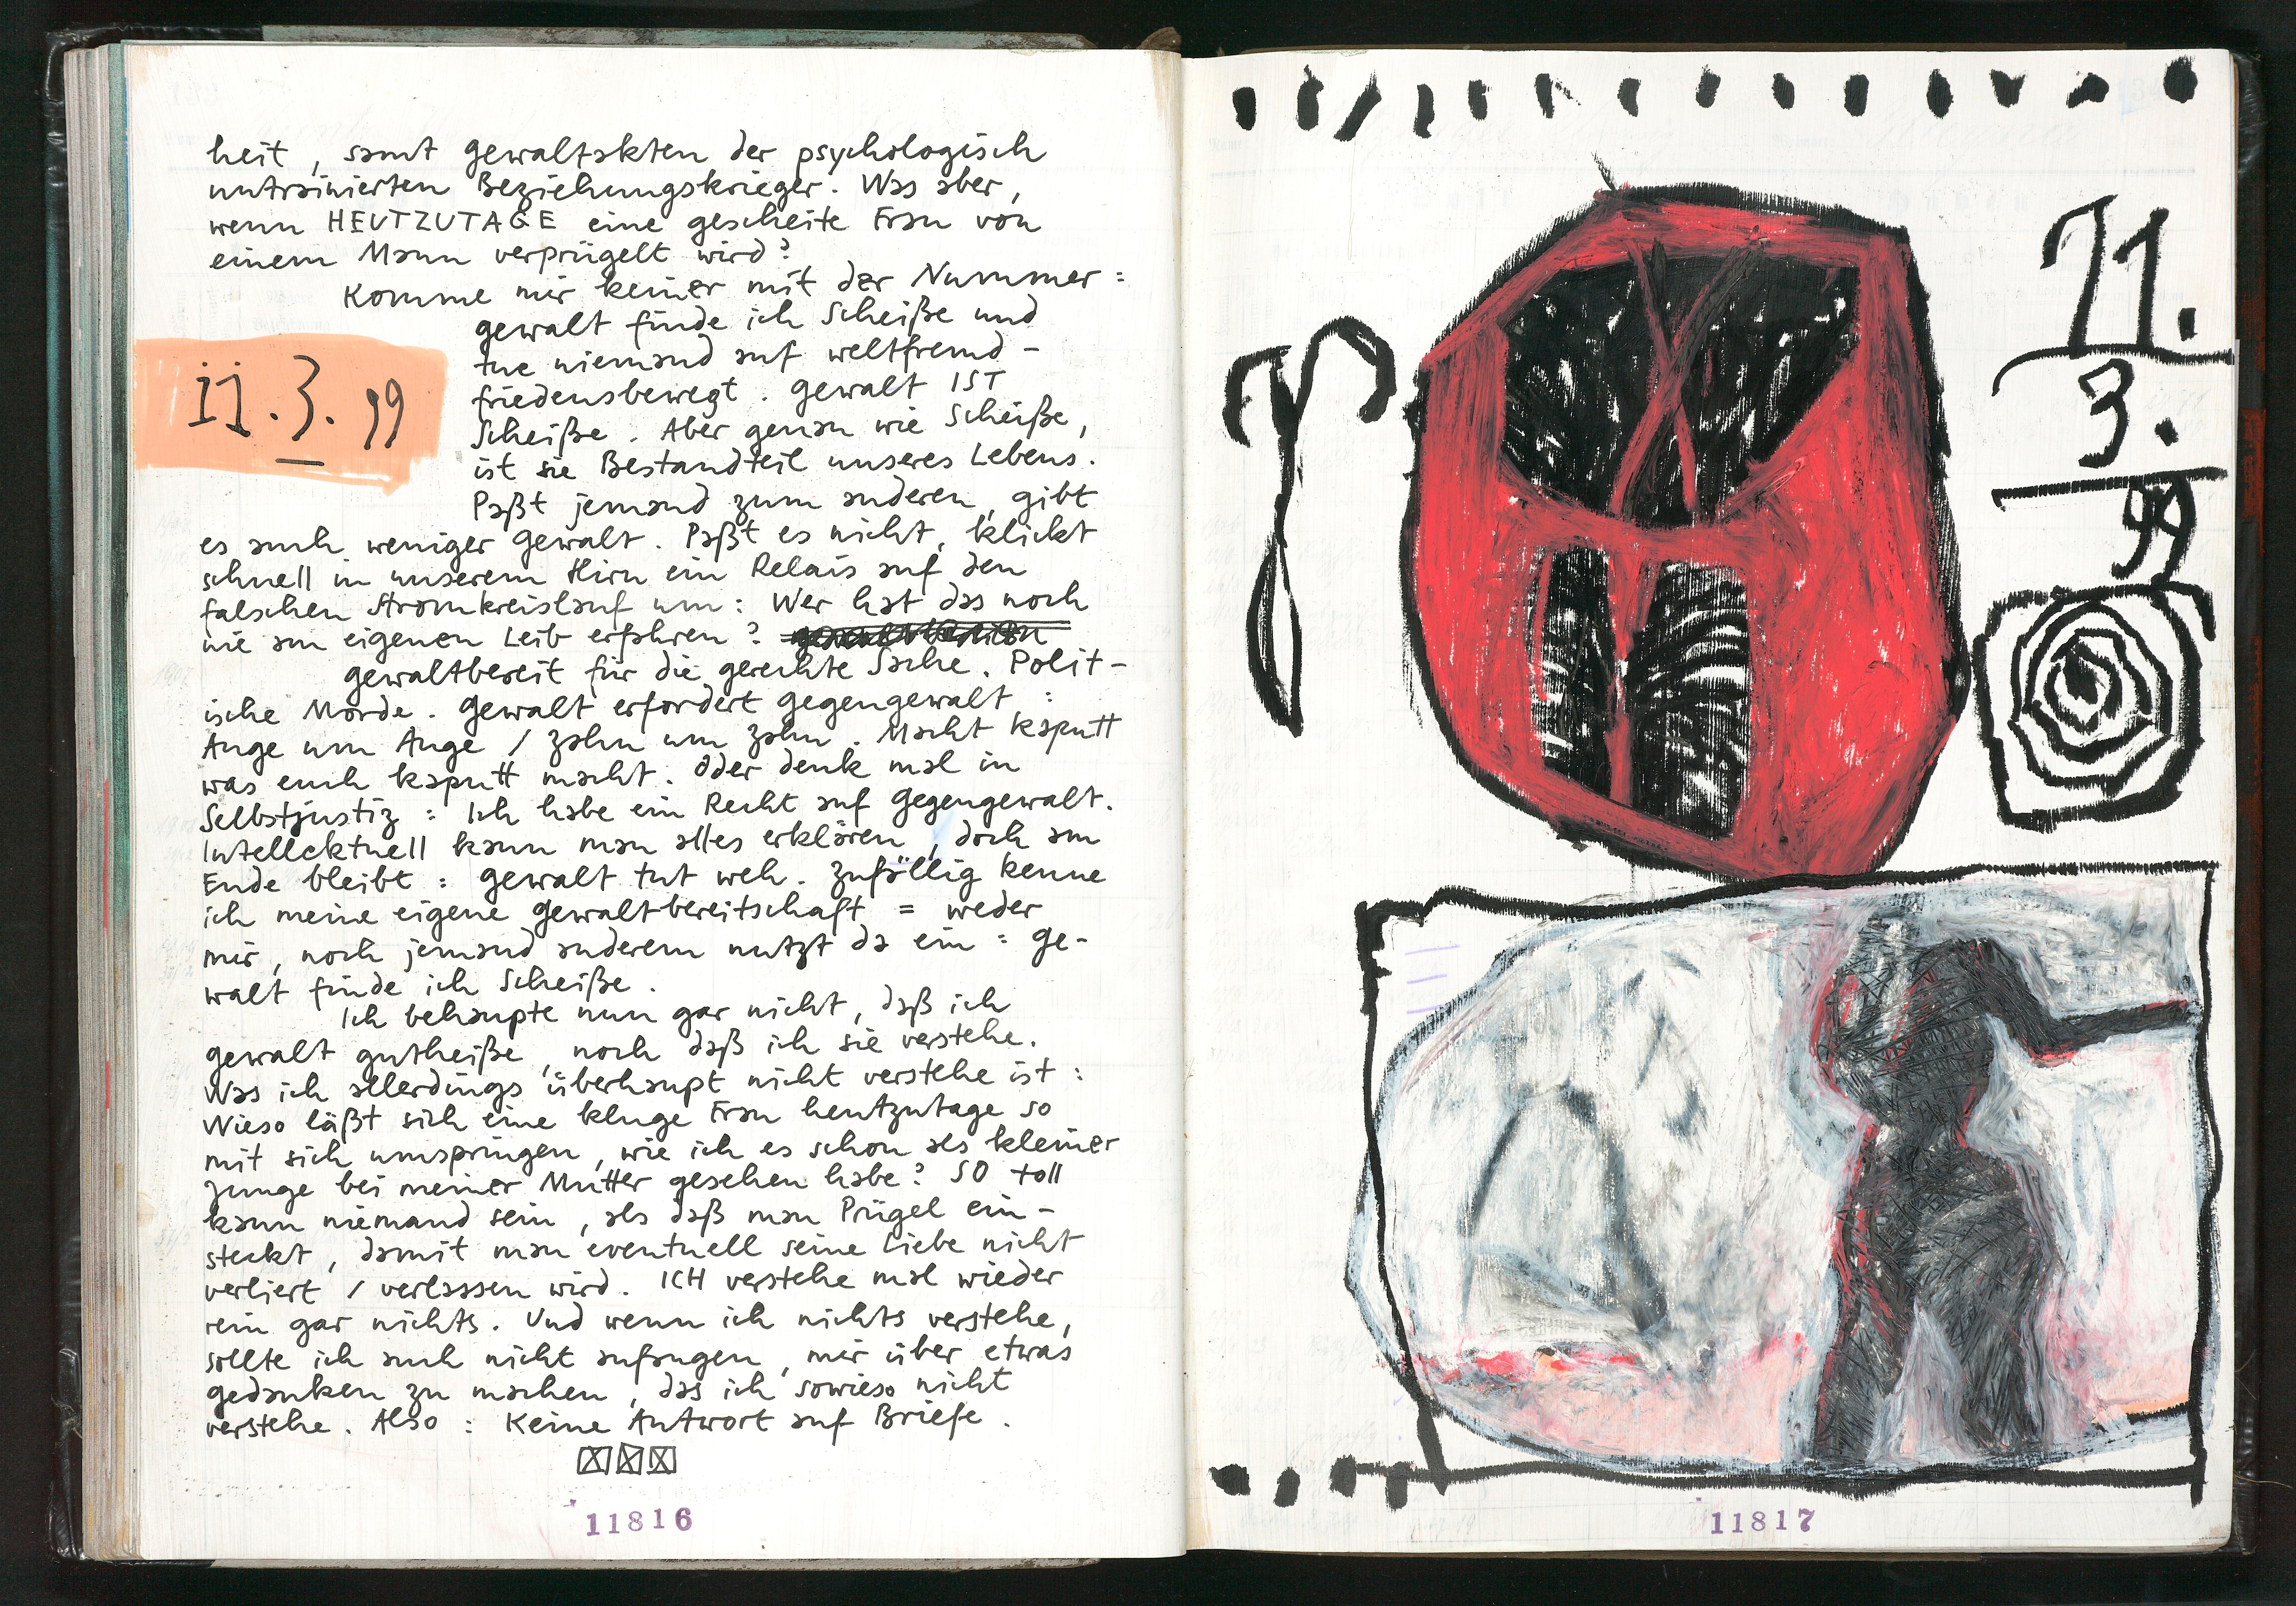 heit, samt Gewaltakten der psychologisch
untrainierten Beziehungskrieger. Was aber,
wenn HEUTZUTAGE eine gescheite Frau von
einem Mann verprügelt wird?
Komme mir keiner mit der Nummer:
Gewalt finde ich Scheiße und
tue niemand auf weltfremd-
friedensbewegt. Gewalt IST
Scheiße. Aber genau wie Scheiße,
ist sie Bestandteil unseres Lebens.
Paßt jemand zum anderen, gibt
11.3.99
es auch weniger Gewalt. Paßt es nicht, klickt
schnell in unserem Hirn ein Relais auf den
falschen Stromkreislauf um: Wer hat das noch
nie am eigenen Leib erfahren?
Gewaltbereit für die gerechte Sache. Polit-
ische Morde. Gewalt erfordert Gegengewalt:
Auge um Auge / Zahn um Zahn. Macht kaputt
was euch kaputt macht. Oder denk mal in
Selbstjustiz: Ich habe ein Recht auf Gegengewalt.
Intellektuell kann man alles erklären, doch am
Ende bleibt: Gewalt tut weh. Zufällig kenne
ich meine eigene Gewaltbereitschaft = weder
mir, noch jemand anderem nutzt da ein: Ge-
walt finde ich Scheiße.
Ich behaupte nun gar nicht, daß ich
Gewalt gutheiße, noch daß ich sie verstehe.
Was ich allerdings überhaupt nicht verstehe ist:
Wieso läßt sich eine kluge Frau heutzutage so
mit sich umspringen, wie ich es schon als kleiner
Junge bei meiner Mutter gesehen habe? SO toll
kann niemand sein, als daß man Prügel ein-
steckt, damit man eventuell seine Liebe nicht
verliert / verlassen wird. ICH verstehe mal wieder
rein gar nichts. Und wenn ich nichts verstehe,
sollte ich auch nicht anfangen, mir über etwas
Gedanken zu machen, das ich sowieso nicht
verstehe. Also: Keine Antwort auf Briefe.
11816
11.
3.
99
11817